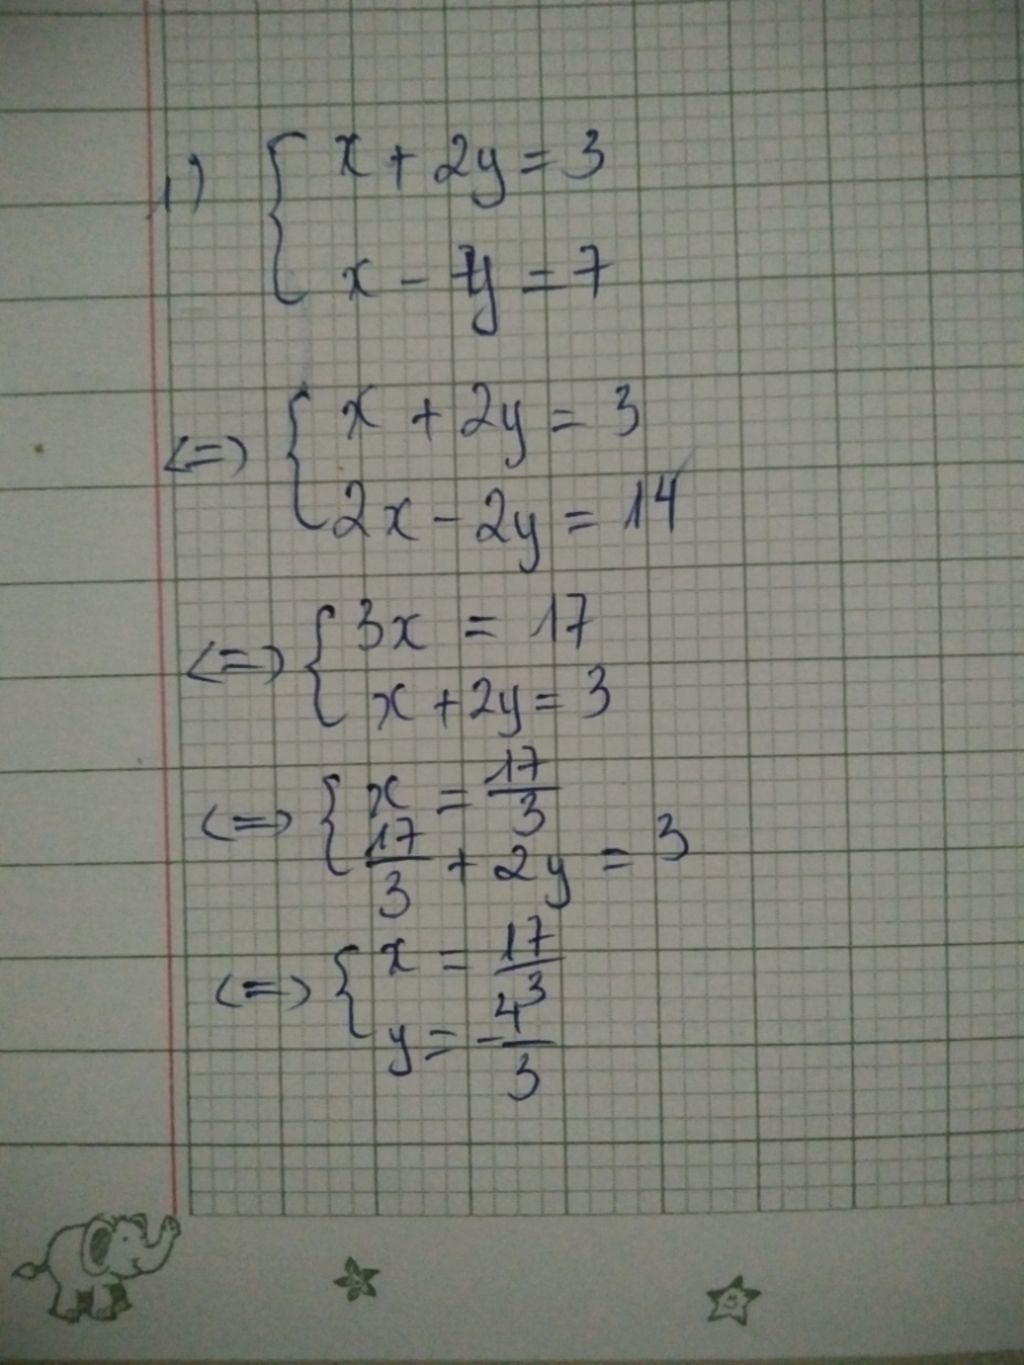 1) { x + 2y = 3
x - y = 7
<=> { x + 2y = 3
2x - 2y = 14
<=> { 3x = 17
x + 2y = 3
<=> { x = 17/3
17/3 + 2y = 3
<=> { x = 17/3
y = -4/3